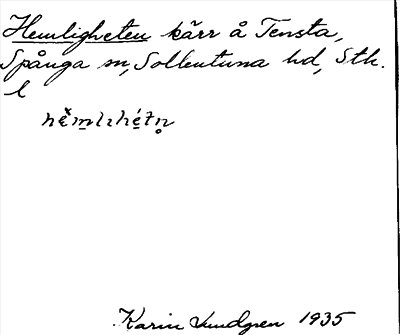 Hemligheten kärr å Tensta,
Spånga sn, Sollentuna hd, Sth.
l
Karin Lundgren 1935